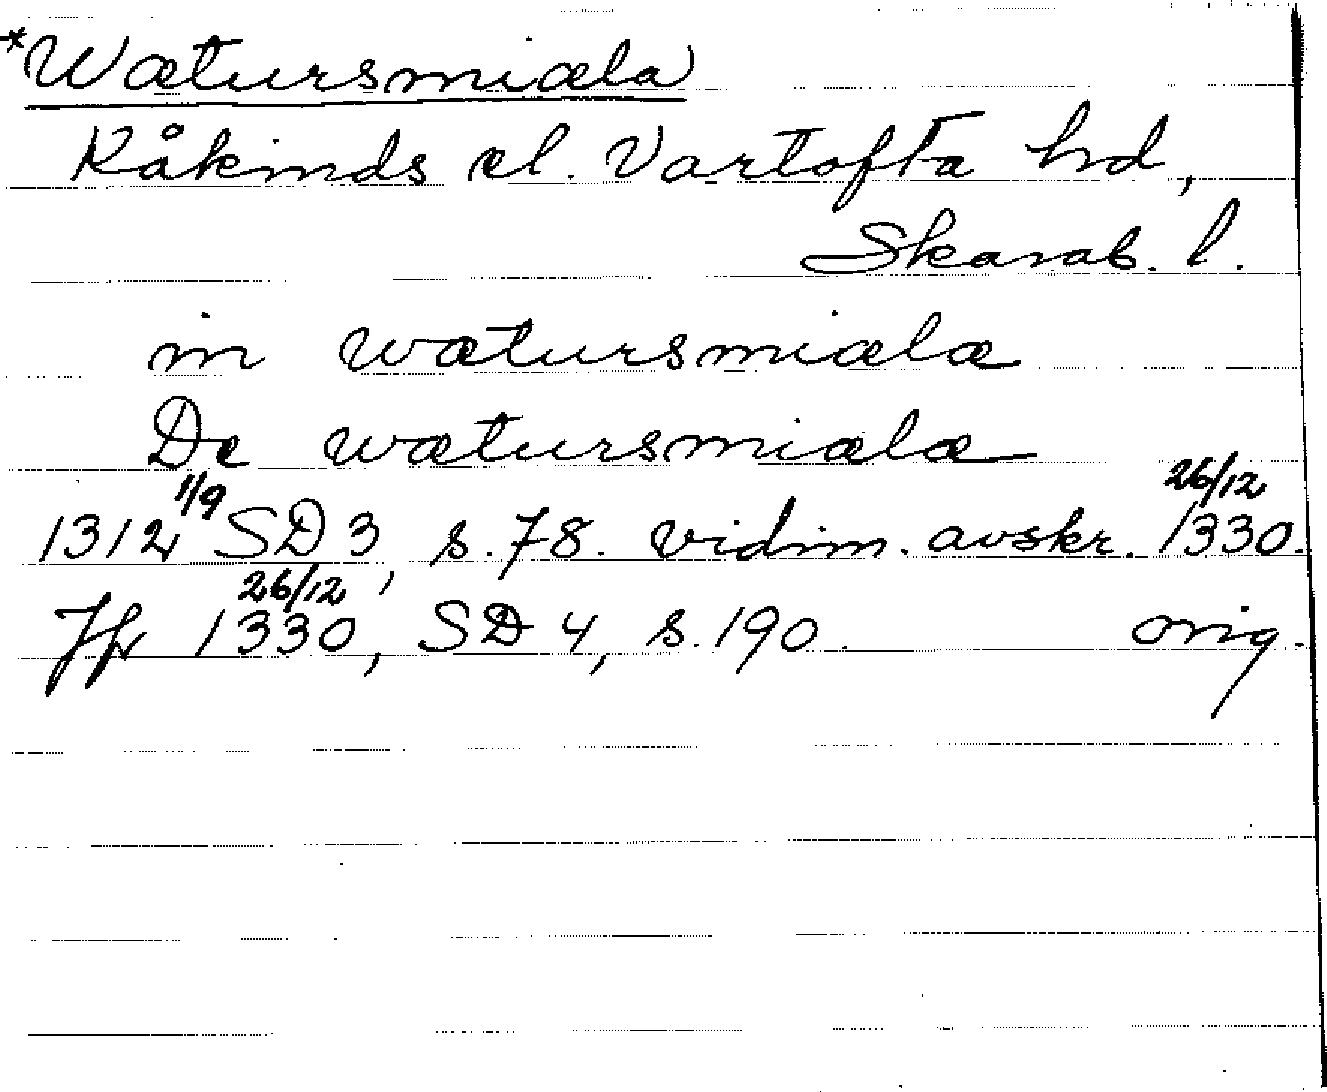 *Wætursmiæla
Kåkinds el. Vartofta hd,
Skarab. l.
in wætursmiælæ
De wætursmiælæ
1312 1/9 SD 3, s. 78. vidim. avskr. 26/12 1330.
Jfr 26/12 1330, SD 4, s. 190. orig.